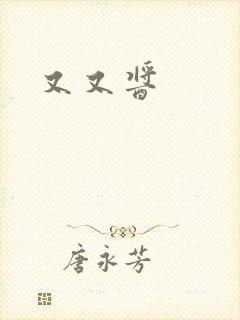 又又酱
唐永芳